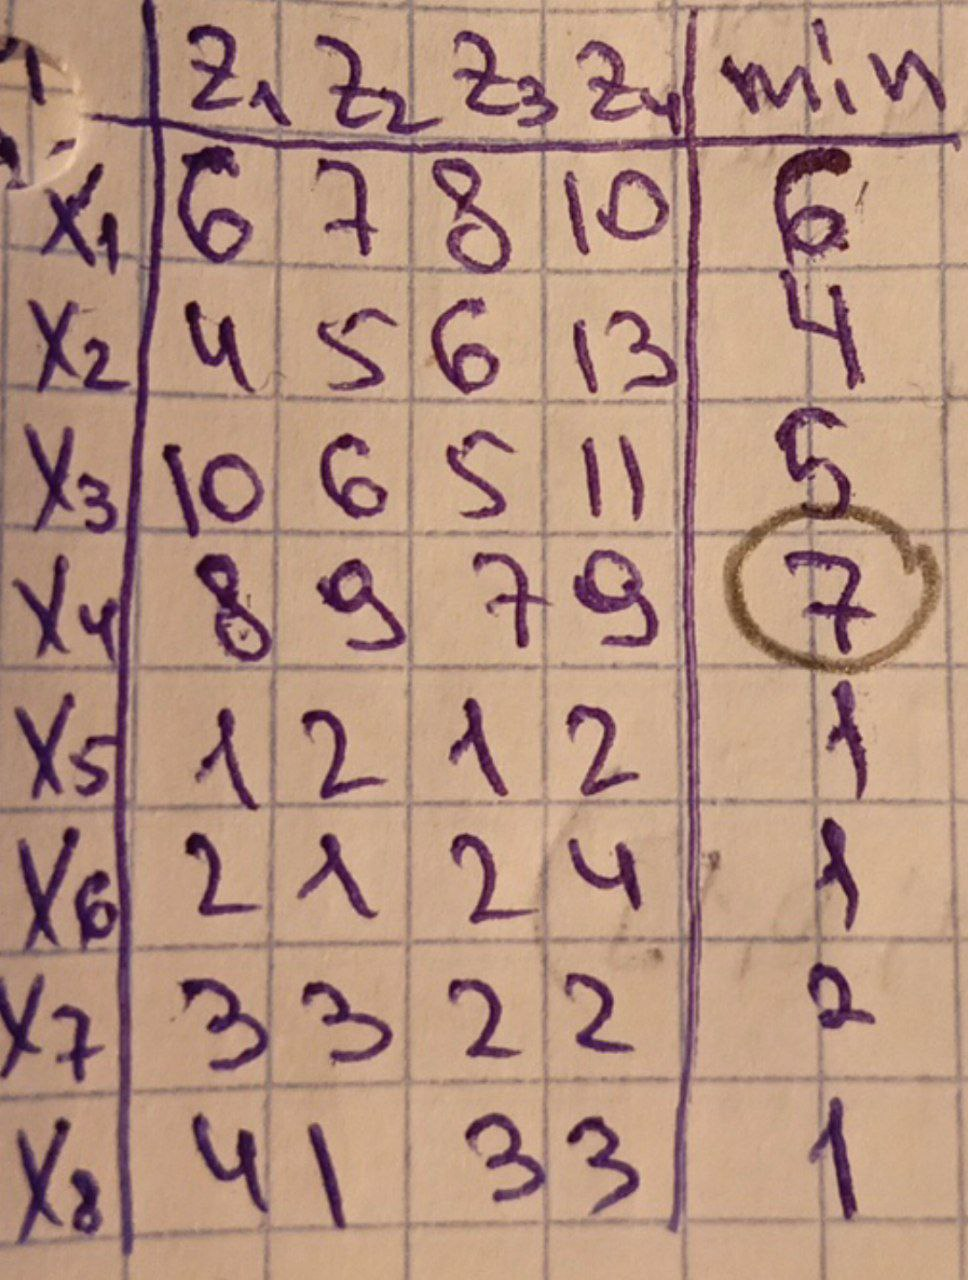 z1 z2 z3 z4 min
x1 6 7 8 10 6
x2 4 5 6 13 4
x3 10 6 5 11 5
x4 8 9 7 9 7
x5 1 2 1 2 1
x6 2 1 2 4 1
x7 3 3 2 2 2
x8 4 1 3 3 1